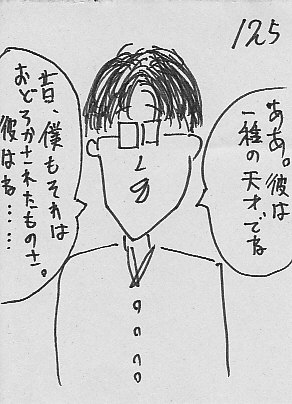 125
ああ。彼は
一種の天才でな
昔、僕もそれは
おどろかされたものさ。
彼はも……